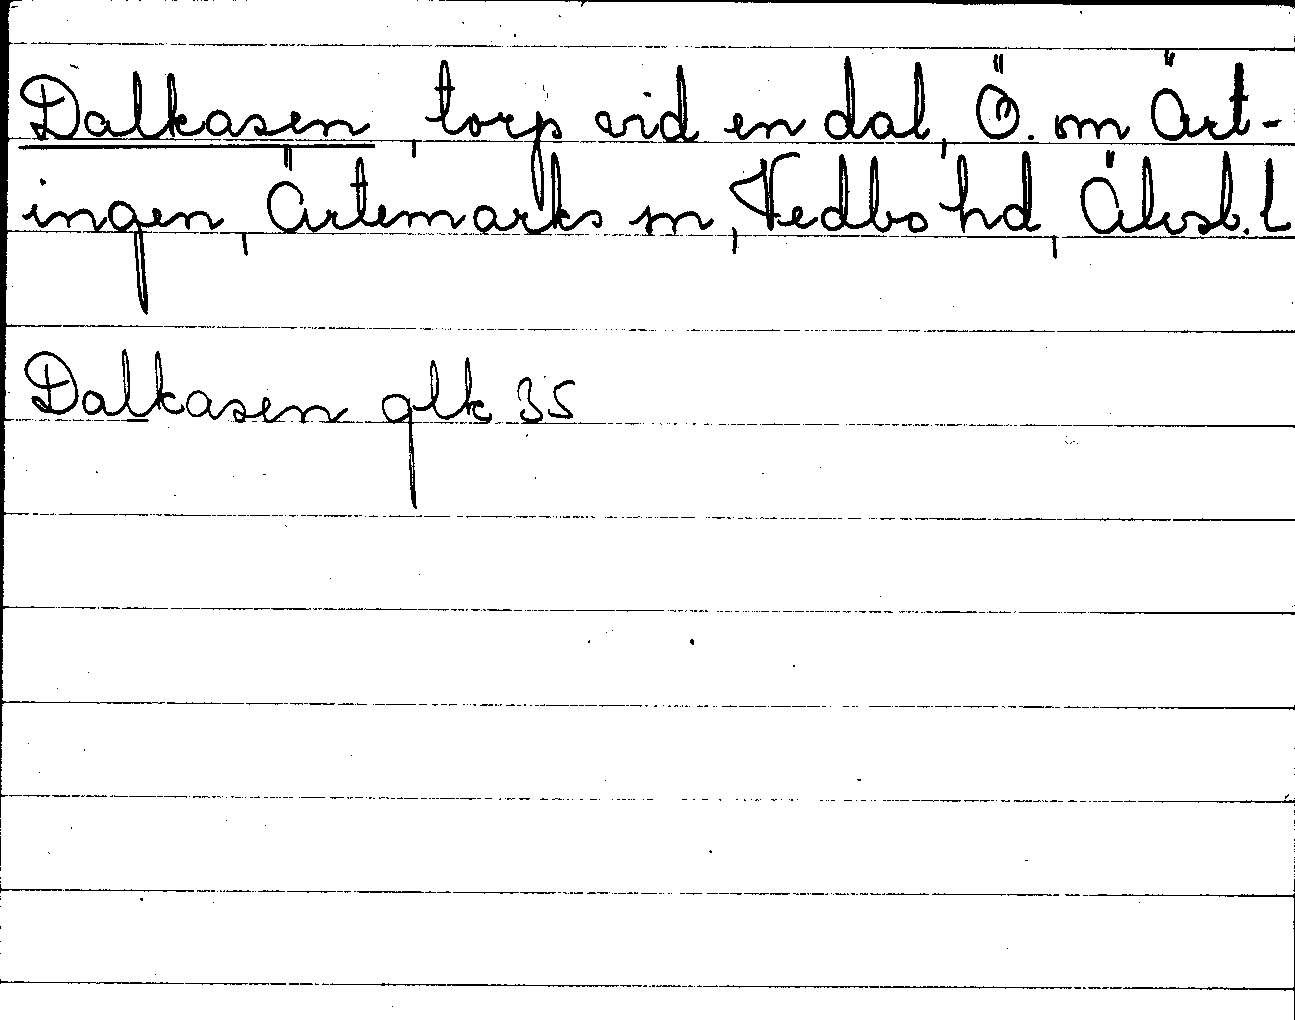 Dalkasen, torp vid en dal, Ö. om Ärt-
ingen, Ärtemarks sn, Vedbo hd, Älvsb. l
Dalkasen glk 35